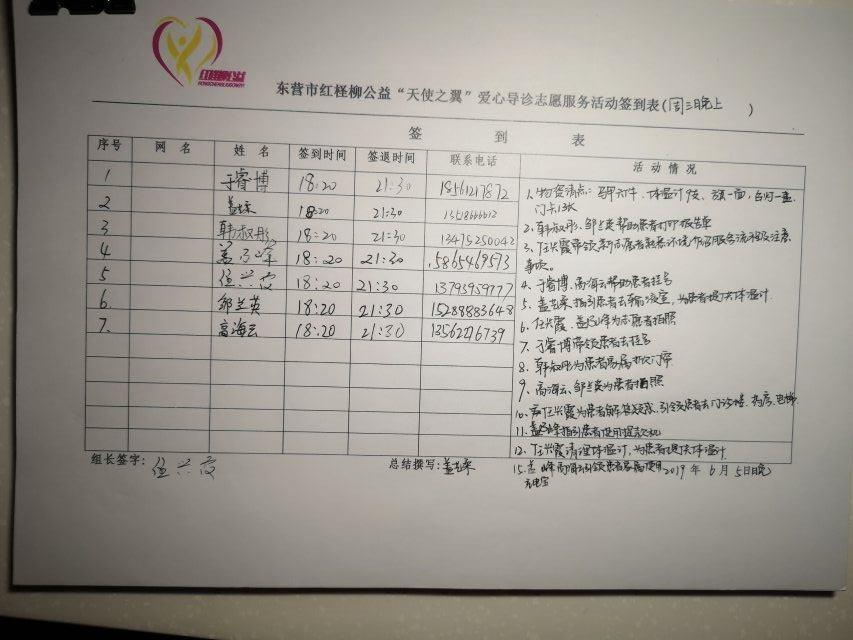 红柽柳公益
东营市红柽柳公益“天使之翼”爱心导诊志愿服务活动签到表(周三晚上 )
签 到 表
序号 网 名 姓 名 签到时间 签退时间 联系电话 活 动 情 况
1 于睿博 18:20 21:30 18561217872
2 18:20 21:30
3 韩叔彤 18:20 21:30 13475250042
4 18:20 21:30 5865469573
5 任兴霞 18:20 21:30 13793959777
6. 邹兰英 18:20 21:30 15288883648
7. 高海云 18:20 21:30 13562276739
1、物资清点: 体温计 旗一面
2、韩叔彤、邹兰英帮助患者打印报告单
3、任兴霞带领新志愿者熟悉环境 服务流程及注意
事项。
4、于睿博、高海云帮助患者挂号
5、 指引患者去输液室、为患者提供体温计
6、任兴霞、 为志愿者拍照
7、于睿博带领患者去挂号
8、韩叔彤为患者家属
9、高海云、邹兰英为患者
10、任兴霞为患者解答疑惑、引领患者去门诊楼、药房、电梯
11、 指引患者使用提款机
12、任兴霞清理体温计,为患者提供体温计
组长签字:任兴霞 总结撰写: 15、 峰高海云引领患者家属使用 2019年6月5日晚
充电宝